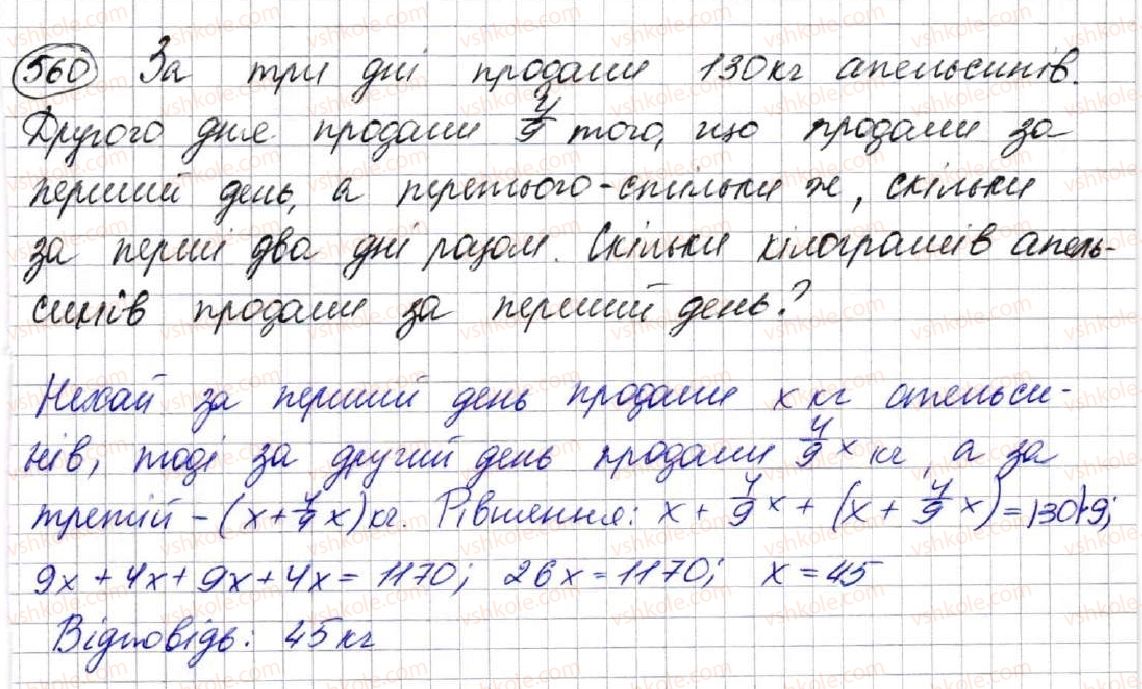 560 За три дні продали 130 кг апельсинів.
Другого дня продали 4/9 того, що продали за
перший день, а третього - стільки ж, скільки
за перші два дні разом. Скільки кілограмів апель-
синів продали за перший день?
Нехай за перший день продали x кг апельси-
нів, тоді за другий день продали 4/9 x кг, а за
третій - (x + 4/9 x) кг. Рівняння: x + 4/9 x + (x + 4/9 x) = 130|·9;
9x + 4x + 9x + 4x = 1170; 26x = 1170; x = 45
Відповідь: 45 кг